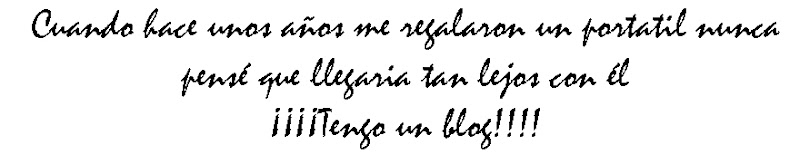 Cuando hace unos años me regalaron un portatil nunca
pensé que llegaria tan lejos con él
¡¡¡¡Tengo un blog!!!!